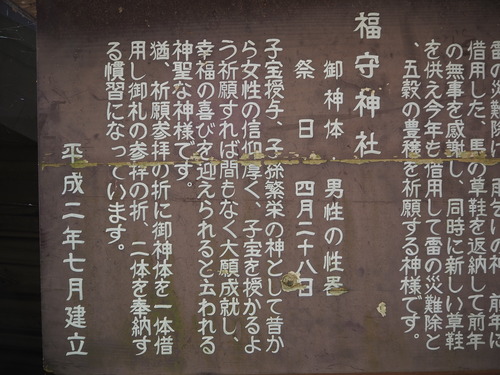 雷の災難除け
借用した、馬の草鞋を返納して前年
の無事を感謝し、同時に新しい草鞋
を供え今年も借用して雷の災難除と
、五穀の豊穣を祈願する神様です。
福守神社
御神体 男性の性器
祭日 四月二十八日
子宝授与、子孫繁栄の神として昔か
ら女性の信仰厚く、子宝を授かるよ
う祈願すれば間もなく大願成就し、
幸福の喜びを迎えられると云われる
神聖な神様です。
猶、祈願参拝の折に御神体を一体借
用し御礼の参拝の折、二体を奉納す
る慣習になっています。
平成二年七月建立